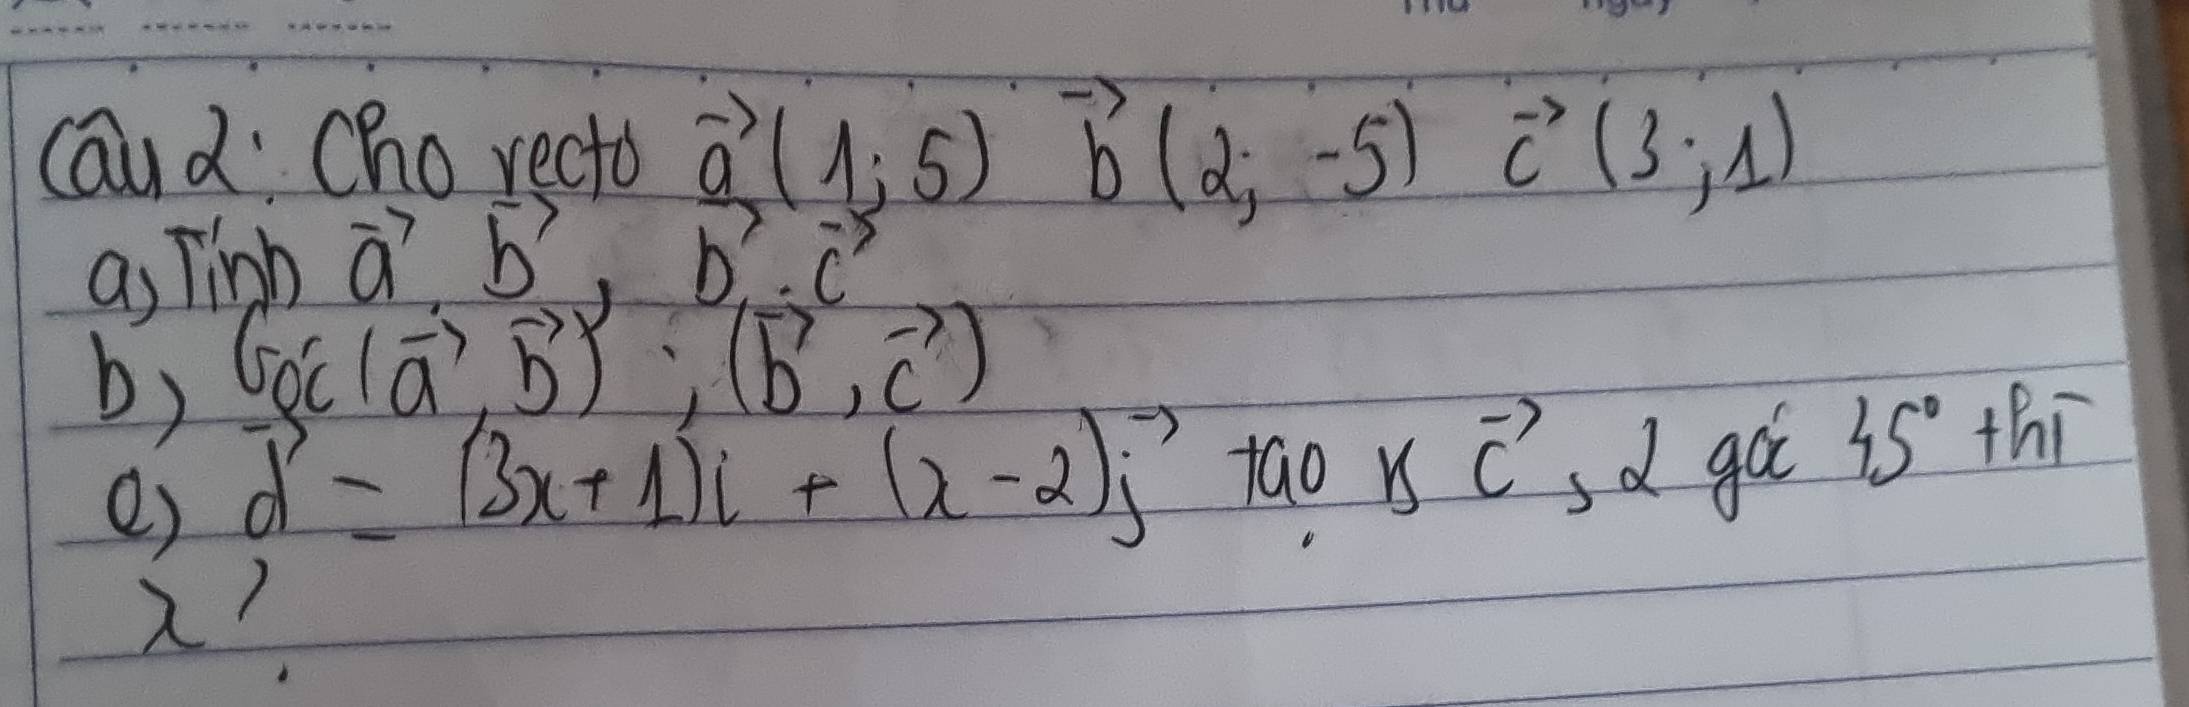 Thứ ngày
Câu 2: Cho vectơ a⃗ (1; 5) b⃗ (2; -5) c⃗ (3; 1)
a, Tính a⃗ . b⃗ , b⃗ . c⃗
b, Góc (a⃗ , b⃗) ; (b⃗ , c⃗)
c) d⃗ = (3x + 1)i + (x - 2)j⃗ tạo vs c⃗ , 2 góc 45° thì
x ?